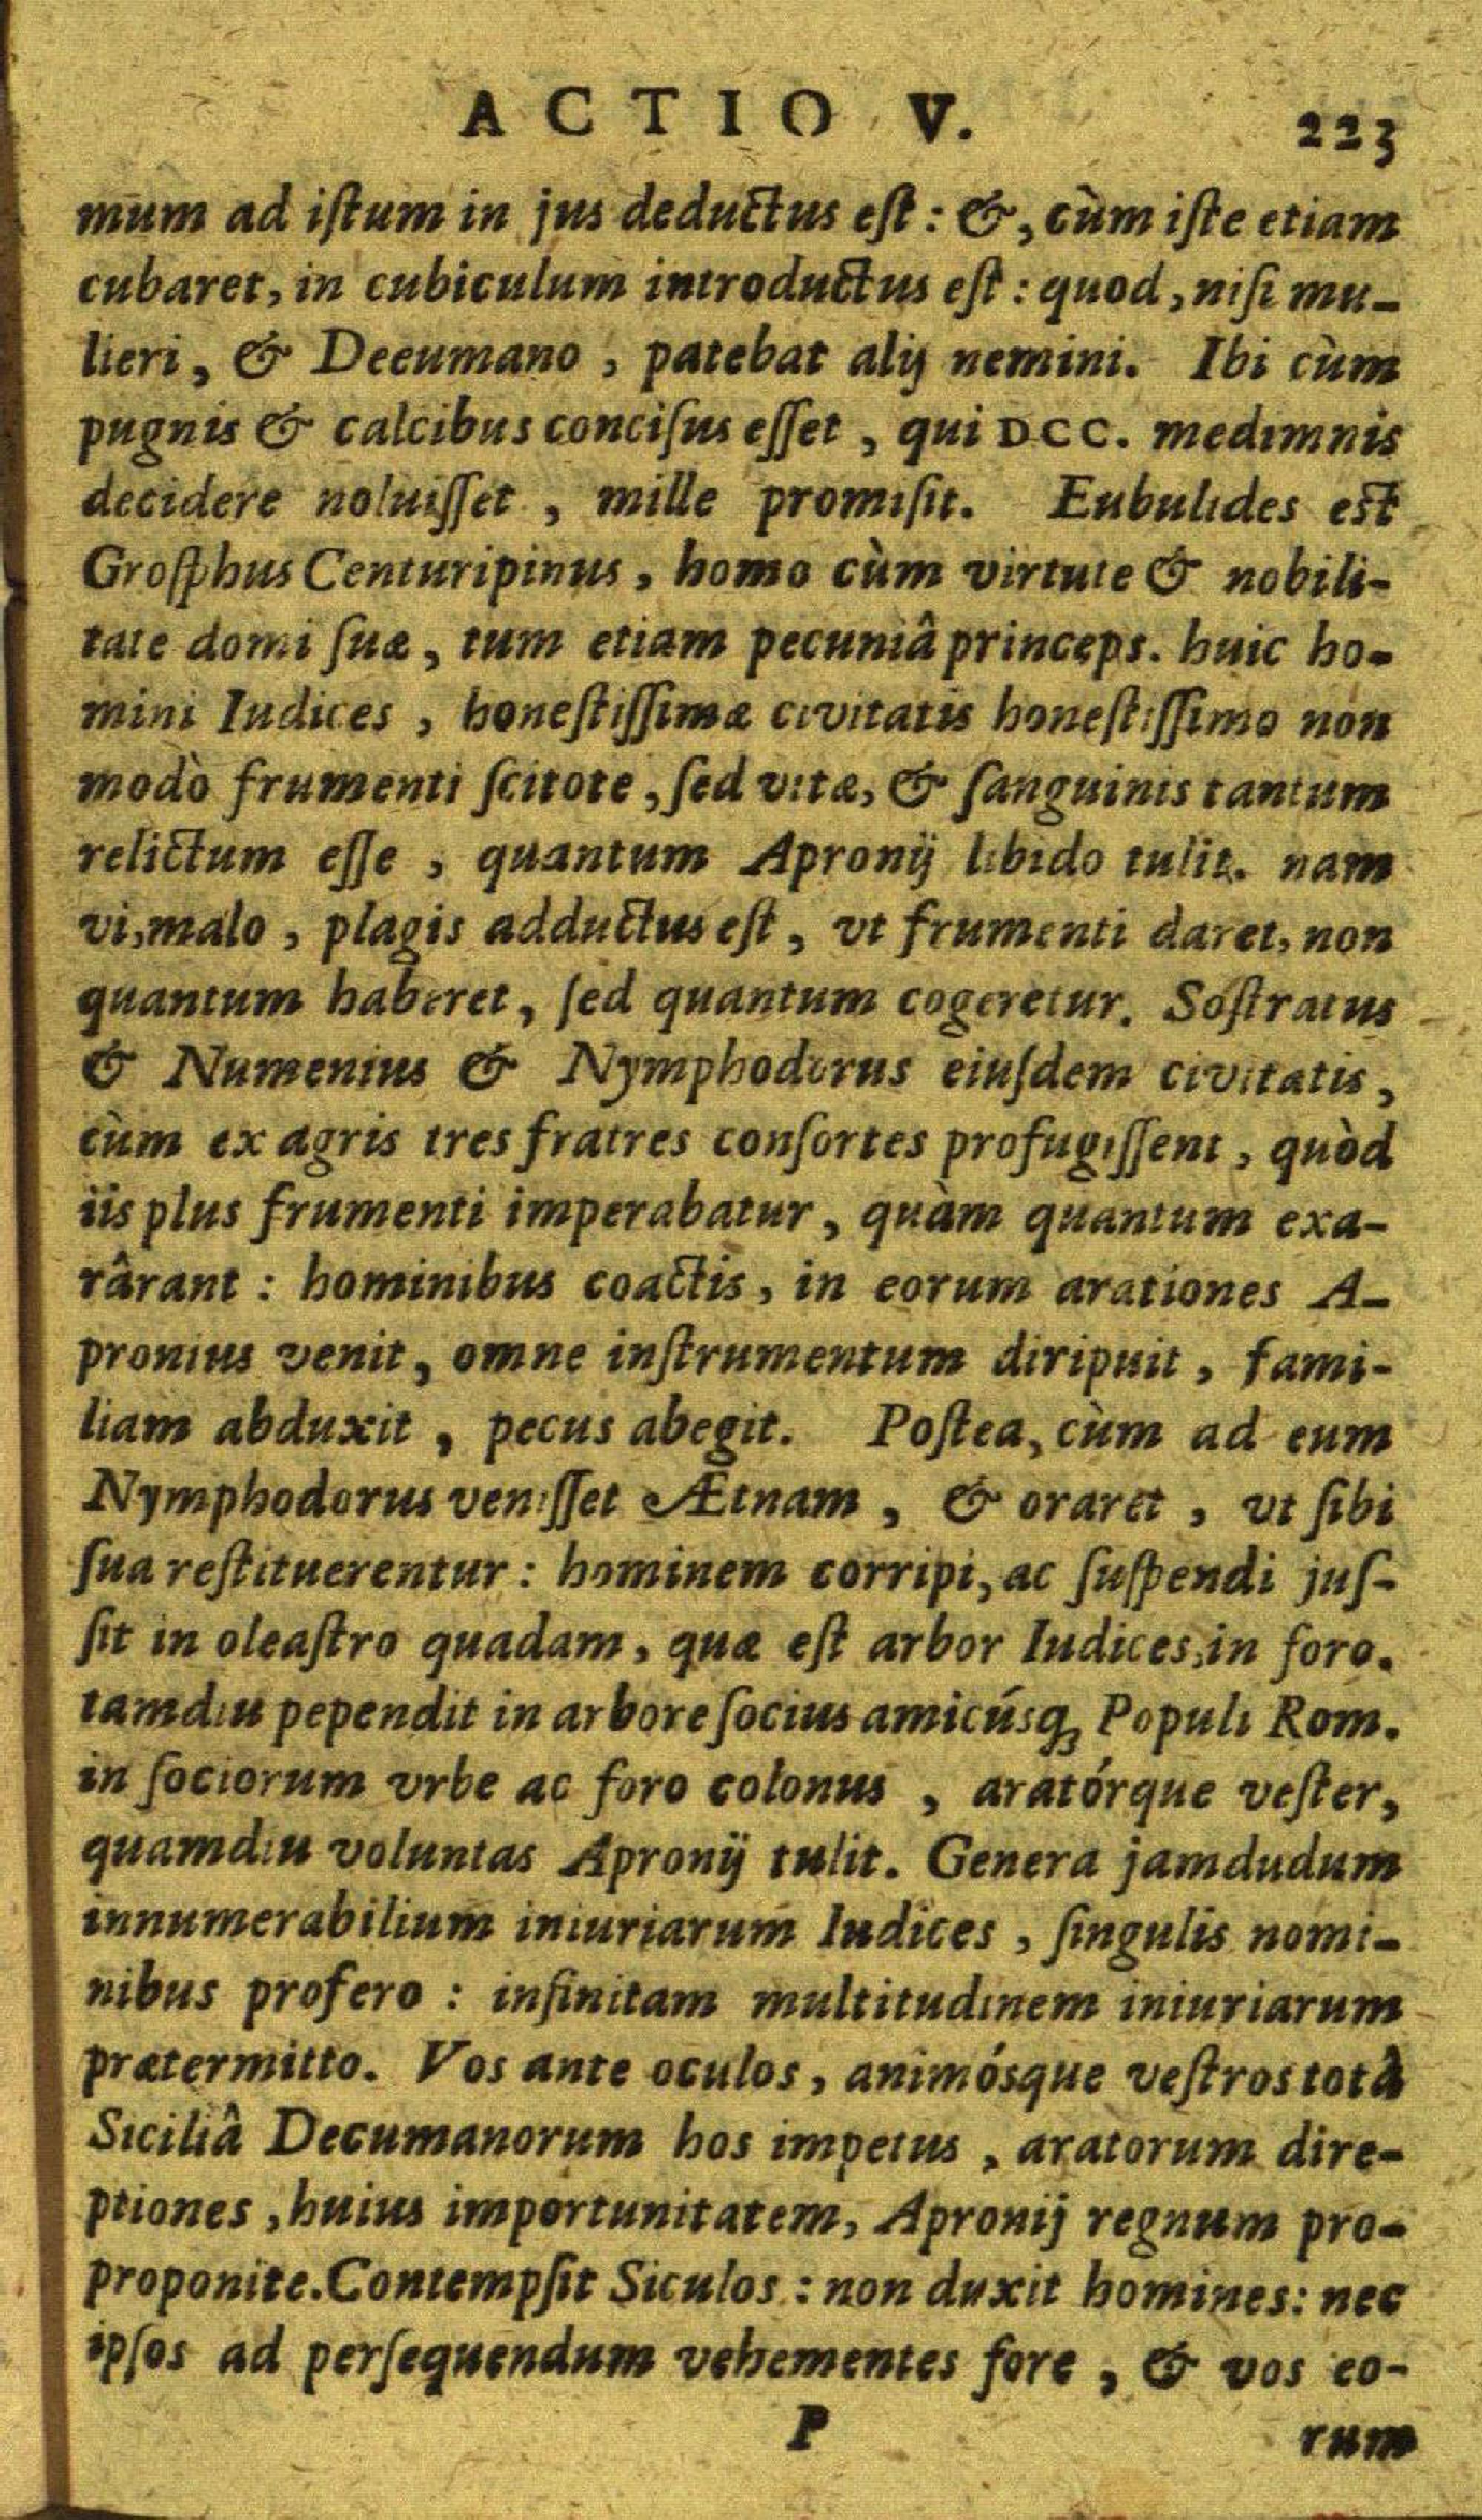 ACTIO V. 223
mum ad iſtum in jus deductus eſt : &, cùm iſte etiam
cubaret, in cubiculum introductus eſt : quod, niſi mu-
lieri, & Deeumano, patebat alij nemini. Ibi cùm
pugnis & calcibus conciſus eſſet, qui DCC. medimnis
decidere noluiſſet, mille promiſit. Eubulides eſt
Groſphus Centuripinus, homo cùm virtute & nobili-
tate domi ſuæ, tum etiam pecuniâ princeps. huic ho-
mini Iudices, honeſtiſſimæ civitatis honeſtiſſimo non
modò frumenti ſcitote, ſed vitæ, & ſanguinis tantum
relictum eſſe, quantum Apronij libido tulit. nam
vi, malo, plagis adductus eſt, vt frumenti daret, non
quantum haberet, ſed quantum cogeretur. Soſtratus
& Numenius & Nymphodorus eiuſdem civitatis,
cùm ex agris tres fratres conſortes profugiſſent, quòd
iis plus frumenti imperabatur, quàm quantum exa-
rârant : hominibus coactis, in eorum arationes A-
pronius venit, omne inſtrumentum diripuit, fami-
liam abduxit, pecus abegit. Poſtea, cùm ad eum
Nymphodorus veniſſet Ætnam, & oraret, vt ſibi
ſua reſtituerentur : hominem corripi, ac ſuſpendi juſ-
ſit in oleaſtro quadam, quæ eſt arbor Iudices, in foro.
tamdiu pependit in arbore ſocius amicúsq; Populi Rom.
in ſociorum vrbe ac foro colonus, aratórque veſter,
quamdiu voluntas Apronij tulit. Genera jamdudum
innumerabilium iniuriarum Iudices, ſingulis nomi-
nibus profero : infinitam multitudinem iniuriarum
prætermitto. Vos ante oculos, animósque veſtros totâ
Siciliâ Decumanorum hos impetus, aratorum dire-
ptiones, huius importunitatem, Apronij regnum pro-
proponite. Contempſit Siculos : non duxit homines: nec
ipſos ad perſequendum vehementes fore, & vos eo-
P rum